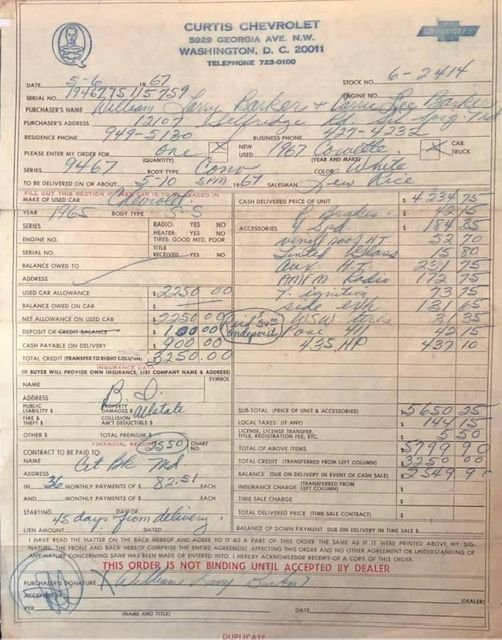 CURTIS CHEVROLET
5929 GEORGIA AVE. N.W.
WASHINGTON, D. C. 20011
TELEPHONE 723-0100
CHEVROLET
DATE 5-6 1967 STOCK NO. 6-2414
SERIAL NO. 194677S115759 ENGINE NO.
PURCHASER'S NAME William Larry Barker & Carrie Lee Barker
PURCHASER'S ADDRESS 12107 Selfridge Rd Sil Spg. Md
RESIDENCE PHONE 949-5130 BUSINESS PHONE 427-4232
PLEASE ENTER MY ORDER FOR One (QUANTITY) X NEW USED 1967 Corvette (YEAR AND MAKE) X CAR TRUCK
SERIES 9467 BODY TYPE Conv COLOR White
TO BE DELIVERED ON OR ABOUT 5-10 5PM 1967 SALESMAN Lew Rice
FILL OUT THIS SECTION IF USED CAR IS TO BE TRADED IN
MAKE OF USED CAR Chevrolet
YEAR 1965 BODY TYPE S-S
SERIES RADIO: YES NO
HEATER: YES NO
ENGINE NO. TIRES: GOOD MED, POOR
SERIAL NO. TITLE RECEIVED YES NO
BALANCE OWED TO
ADDRESS
USED CAR ALLOWANCE $ 2250 00
BALANCE OWED ON CAR $
NET ALLOWANCE ON USED CAR $ 2250 00
DEPOSIT OR CREDIT BALANCE $ 100 00
CASH PAYABLE ON DELIVERY $ 900 00
TOTAL CREDIT (TRANSFER TO RIGHT COLUMN) $ 3250.00
on deposit
CASH DELIVERED PRICE OF UNIT $ 4234 75
P. Brakes 42 15
ACCESSORIES 4 Spd 184 35
vinyl roof HT 52 70
Tinted Glass 15 80
Aux H.T. 231 75
AM/FM Radio 172 75
T. ignition 73 75
side exh 131 65
WSW tires 31 35
Posi 411 42 15
435 HP 437 10
INSURANCE DATA
(IF BUYER WILL PROVIDE OWN INSURANCE, LIST COMPANY NAME & ADDRESS)
NAME SYMBOL
ADDRESS
PUBLIC LIABILITY $ PROPERTY DAMAGES $ Allstate
FIRE & THEFT $ COLLISION AM'T DEDUCTIBLE $
OTHER $ TOTAL PREMIUM $
FINANCIAL RECORD
CONTRACT TO BE PAID TO: 2550 CHART NO.
NAME
ADDRESS
IN 36 MONTHLY PAYMENTS OF $ 82.51 EACH
AND MONTHLY PAYMENTS OF $ EACH
STARTING DAY OF
45 days from delivery
LIEN AMOUNT DATED
SUB-TOTAL (PRICE OF UNIT & ACCESSORIES) $ 5650 25
LOCAL TAXES (IF ANY) 144 15
LICENSE, LICENSE TRANSFER, TITLE, REGISTRATION FEE, ETC. 5 50
TOTAL OF ABOVE ITEMS $ 5799 90
TOTAL CREDIT (TRANSFERRED FROM LEFT COLUMN) $ 3250
BALANCE (DUE ON DELIVERY IN EVENT OF CASH SALE) $ 2549 90
INSURANCE CHARGE (TRANSFERRED FROM LEFT COLUMN) $
TIME SALE CHARGE $
TOTAL DELIVERED PRICE (TIME SALE CONTRACT) $
BALANCE OF DOWN PAYMENT DUE ON DELIVERY IN TIME SALE $
I HAVE READ THE MATTER ON THE BACK HEREOF AND AGREE TO IT AS A PART OF THIS ORDER THE SAME AS IF IT WERE PRINTED ABOVE, MY SIG-
NATURE. THE FRONT AND BACK HEREOF COMPRISE THE ENTIRE AGREEMENT AFFECTING THIS ORDER AND NO OTHER AGREEMENT OR UNDERSTANDING OF
ANY NATURE CONCERNING SAME HAS BEEN MADE OR ENTERED INTO. I HEREBY ACKNOWLEDGE RECEIPT OF A COPY OF THIS ORDER.
THIS ORDER IS NOT BINDING UNTIL ACCEPTED BY DEALER
PURCHASER'S SIGNATURE X William Larry Barker
ACCEPTED BY (DEALER)
PER (NAME) DATE
DUPLICATE